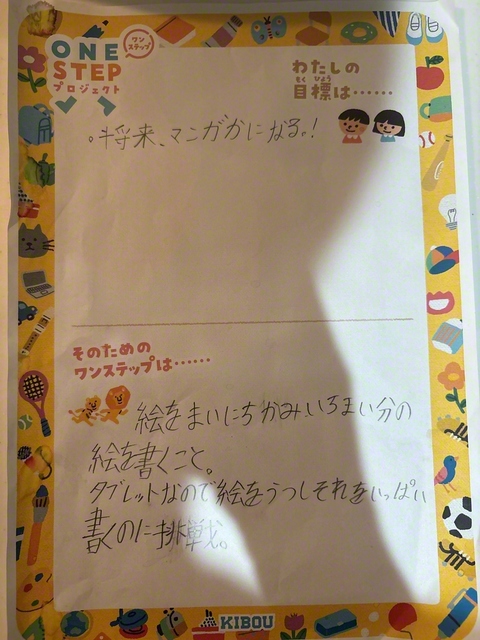 ONE
STEP
プロジェクト
ワン
ステップ
わたしの
もくひょう
目標は……
。将来、マンガかになる。!
そのための
ワンステップは……
絵をまいにちかみいちまい分の
絵を書くこと。
タブレットなので絵をうつしそれをいっぱい
書くのに挑戦。
KIBOU